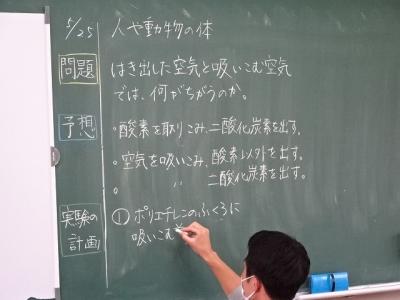 5/25 人や動物の体
問題 はき出した空気と吸いこむ空気
では、何がちがうのか。
予想 ・酸素を取りこみ、二酸化炭素を出す。
・空気を吸いこみ、酸素以外を出す。
。 〃 二酸化炭素を出す。
実験の ①ポリエチレンのふくろに
計画 吸いこむ